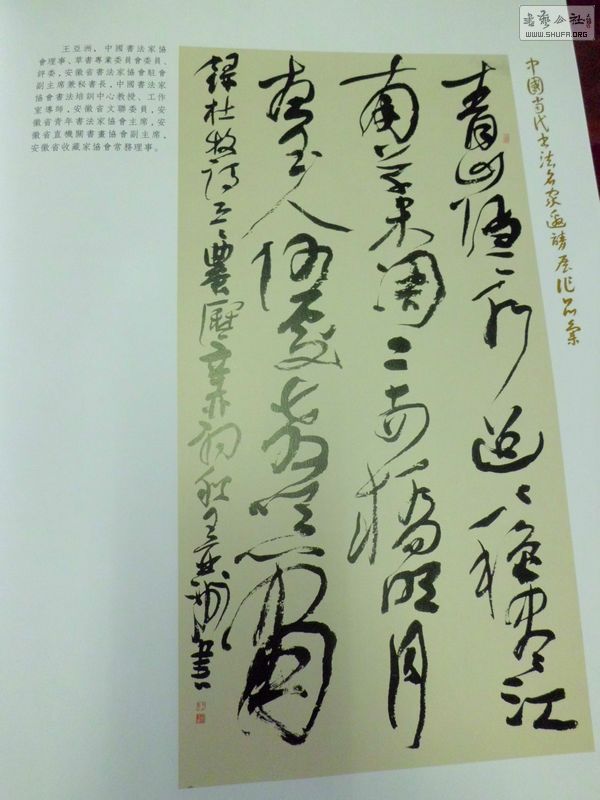 書藝公社
WWW.SHUFA.ORG
王亞洲,中國書法家協
會理事、草書專業委員會委員、
評委,安徽省書法家協會駐會
副主席兼秘書長,中國書法家
協會書法培訓中心教授、工作
室導師,安徽省文聯委員,安
徽省青年書法家協會主席,安
徽省直機關書畫協會副主席,
安徽省收藏家協會常務理事。
中國当代书法名家邀請展作品集
青山隱〻水迢〻秋盡江
南草未凋二十四橋明月
夜玉人何處教吹簫
錄杜牧詩農曆辛卯初秋王亞洲書